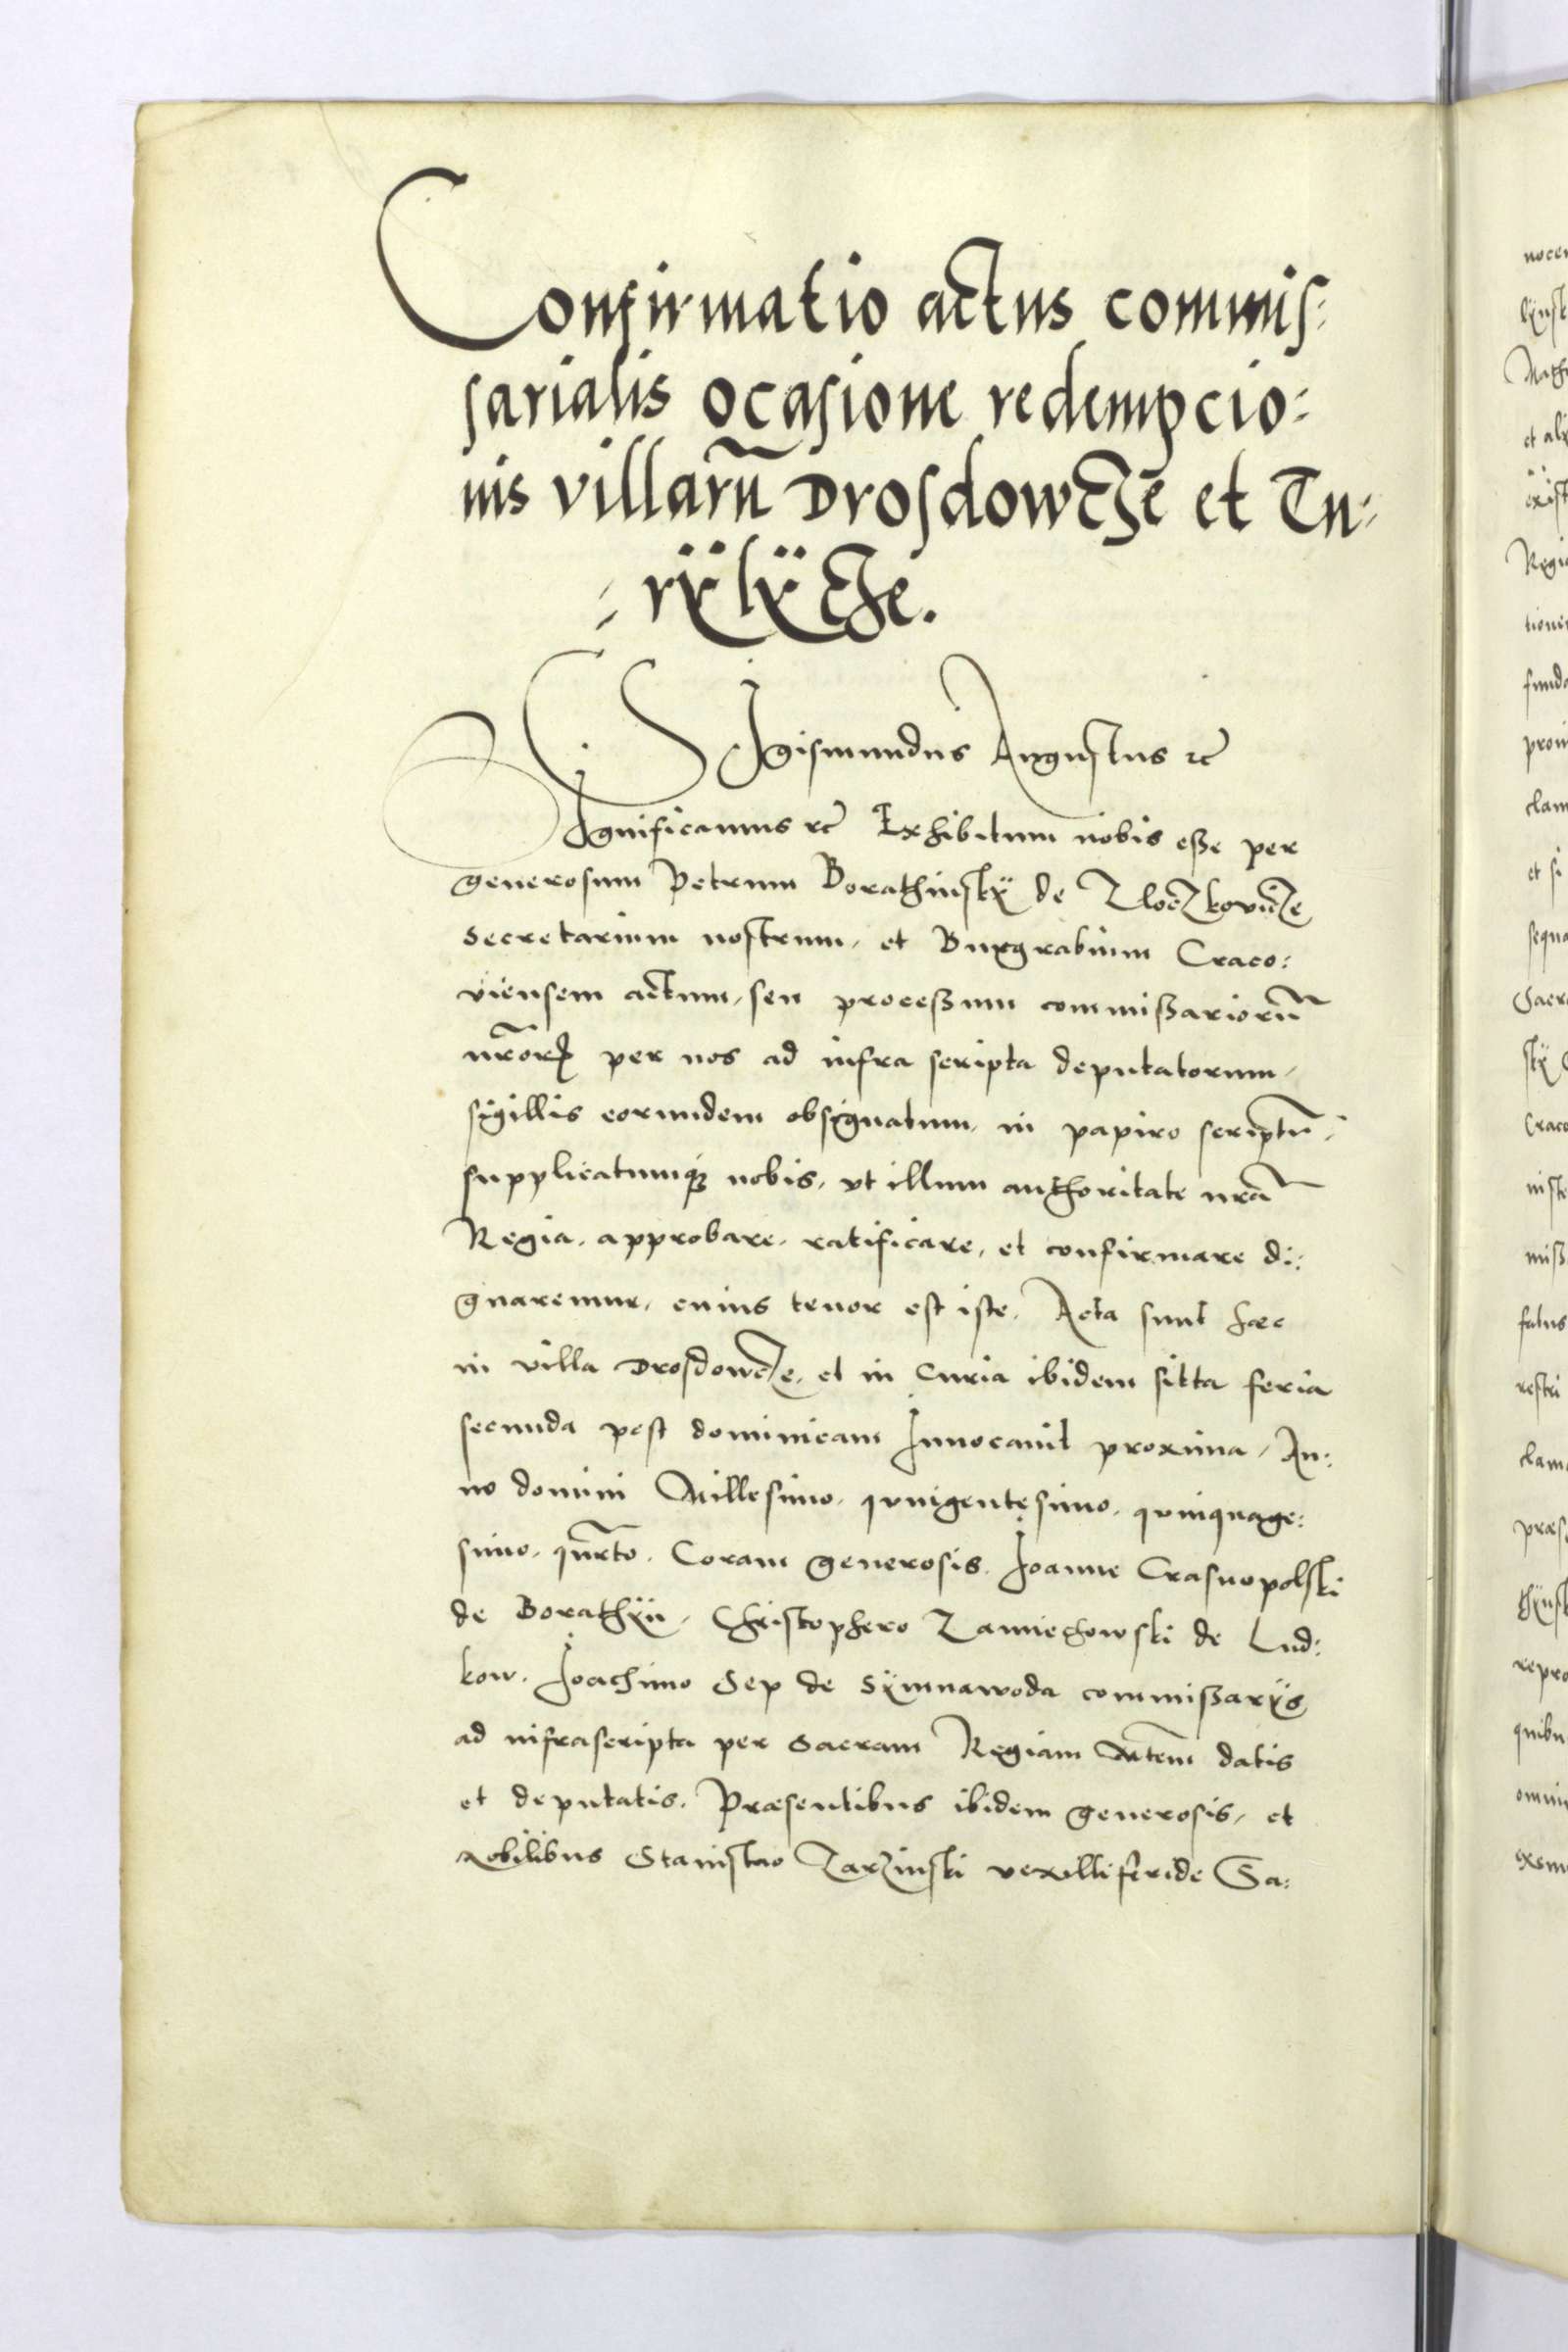 Confirmatio actus commis:
sarialis ocasione redempcio:
nis villarū Drosdowcze et Tu:
:rÿlÿcze.
SIgismundus Augustus ꝛc̄
SIgnificamus ꝛc̄ Exhibitum nobis eße per
generosum Petrum Borathinskÿ de
Secretarium nostrum, et Burgrabium Craco:
viensem actum, seu proceßum commißariorū
nr̄orꝝ per nos ad infra scripta deputatorum,
sigillis eorundem obsignatum, in papiro scriptū,
supplicatumqꝫ nobis, vt illum authoritate nr̄a
Regia, approbare, ratificare, et confirmare di:
gnaremur, cuius tenor est iste. Acta sunt hæc
in villa Drosdowcze, et in Curia ibidem sitta feria
secunda post dominicam Inuocauit proxima, An:
no domini Millesimo, quingentesimo, quinquage:
simo, quarto. Coram generosis, Joanne Crasnopolski
de Borathÿn, Christophero Zamiechowski de Lud:
kow, Joachimo Sep de Sÿmnawoda commißarÿs
ad infrascripta per Sacram Regiam Mtem̄ datis
et deputatis, Præsentibus ibidem generosis, et
Nobilibus Stanislao Zarzinski vexilliferide Sa: